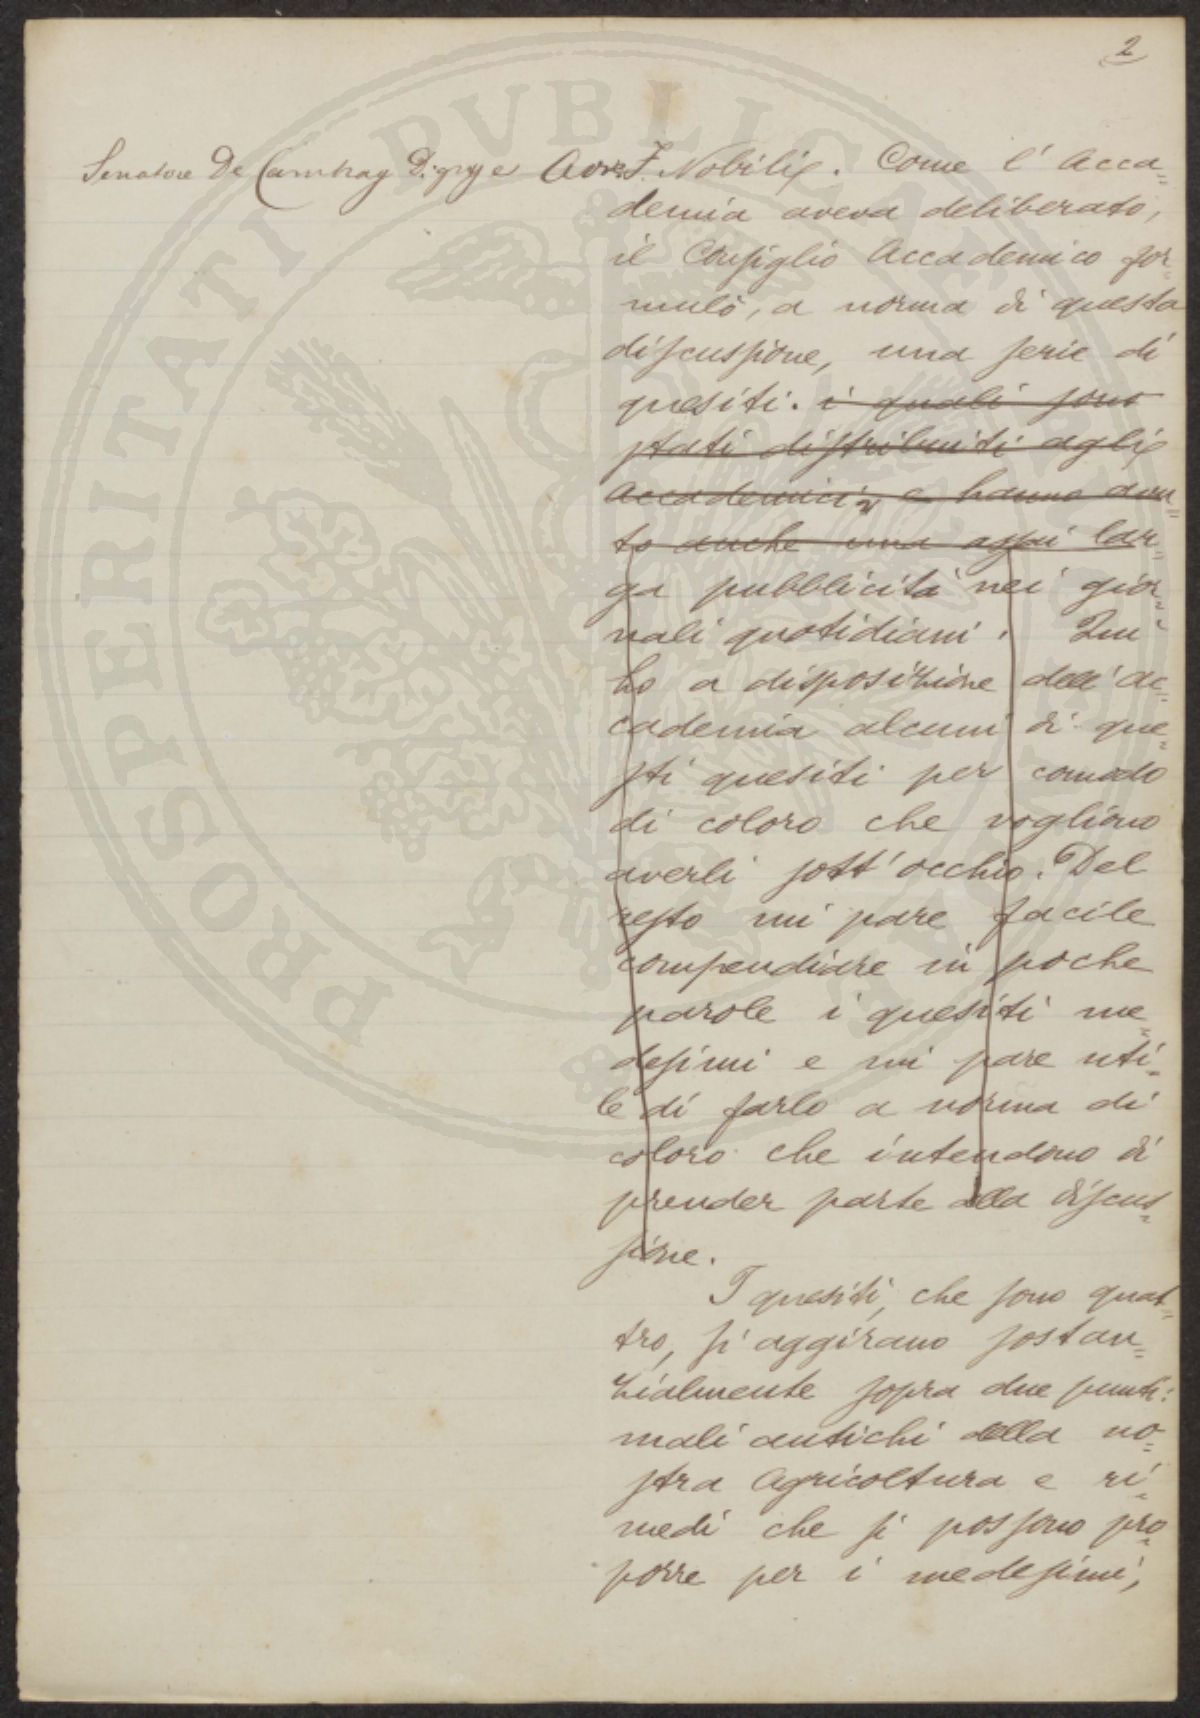 2
Senatore De Cambray Digny e Avv. F. Nobili. Come l'Acca=
demia aveva deliberato,
il Consiglio Accademico for=
mulò, a norma di questa
discussione, una serie di
quesiti. i quali sono
stati distribuiti agli
Accademici e hanno avu=
to anche una assai lar=
ga pubblicità nei gior=
nali quotidiani. Qui
ho a disposizione dell'Ac=
cademia alcuni di que=
sti quesiti per comodo
di coloro che vogliono
averli sott'occhio. Del
resto mi pare facile
compendiare in poche
parole i quesiti me=
desimi e mi pare uti=
le di farlo a norma di
coloro che intendono di
prender parte alla discus=
sione.
I quesiti, che sono quat=
tro, si aggirano sostan=
zialmente sopra due punti:
mali antichi della no=
stra Agricoltura e ri=
medi che si possono pro=
porre per i medesimi,
PROSPERITATI PVBLICAE